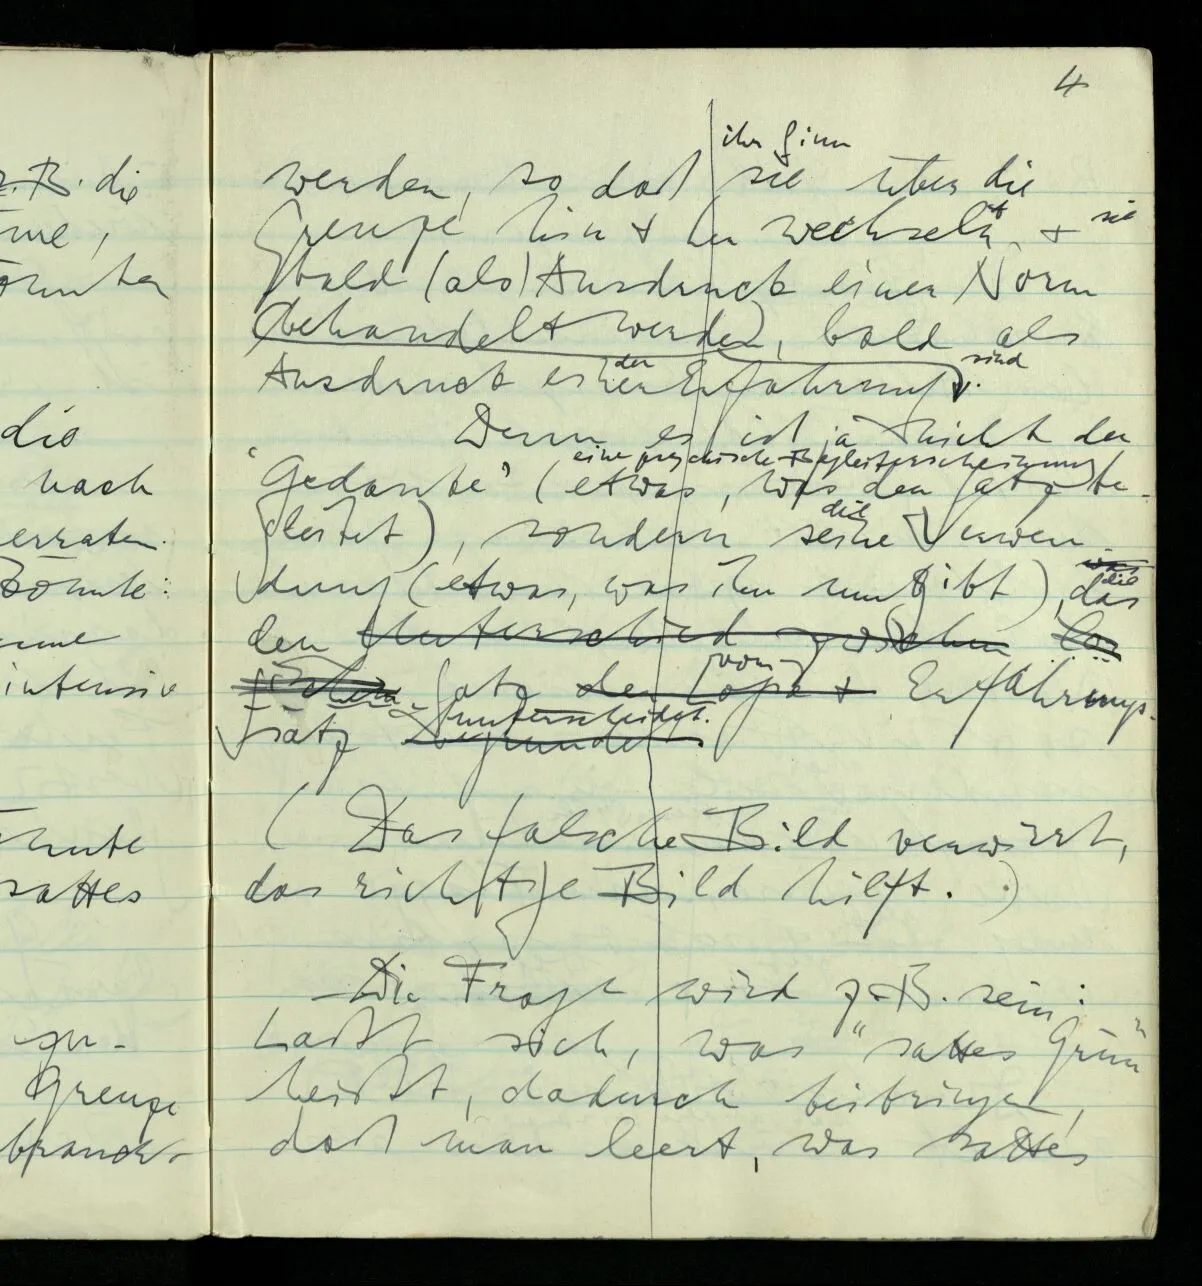 z.B. die
könnten
die
nach
erraten
könnte:
intensiv
könnte
sattes
zu-
Grenze
4
ihr Sinn
werden, so daß sie über die
Grenze hin + her wechselt, + sie
bald (als) Ausdruck einer Norm
(behandelt werden), bald als
der sind
Ausdruck einer Erfahrung.
Denn es ist ja nicht der
eine psychische Begleiterscheinung
'Gedanke' (etwas, was den Satz be-
die
gleitet), sondern seine Verwen-
was die
dung (etwas, was ihn umgibt), das
den Unterschied zwischen lo
gischem Satz der Logik + Erfahrungs-
vom
unterscheidet.
satz begründet
( Das falsche Bild verwirrt,
das richtige Bild hilft. )
Die Frage wird z.B. sein:
Laßt sich, was "sattes Grün"
heißt, dadurch beibringen,
daß man leert, was sattes